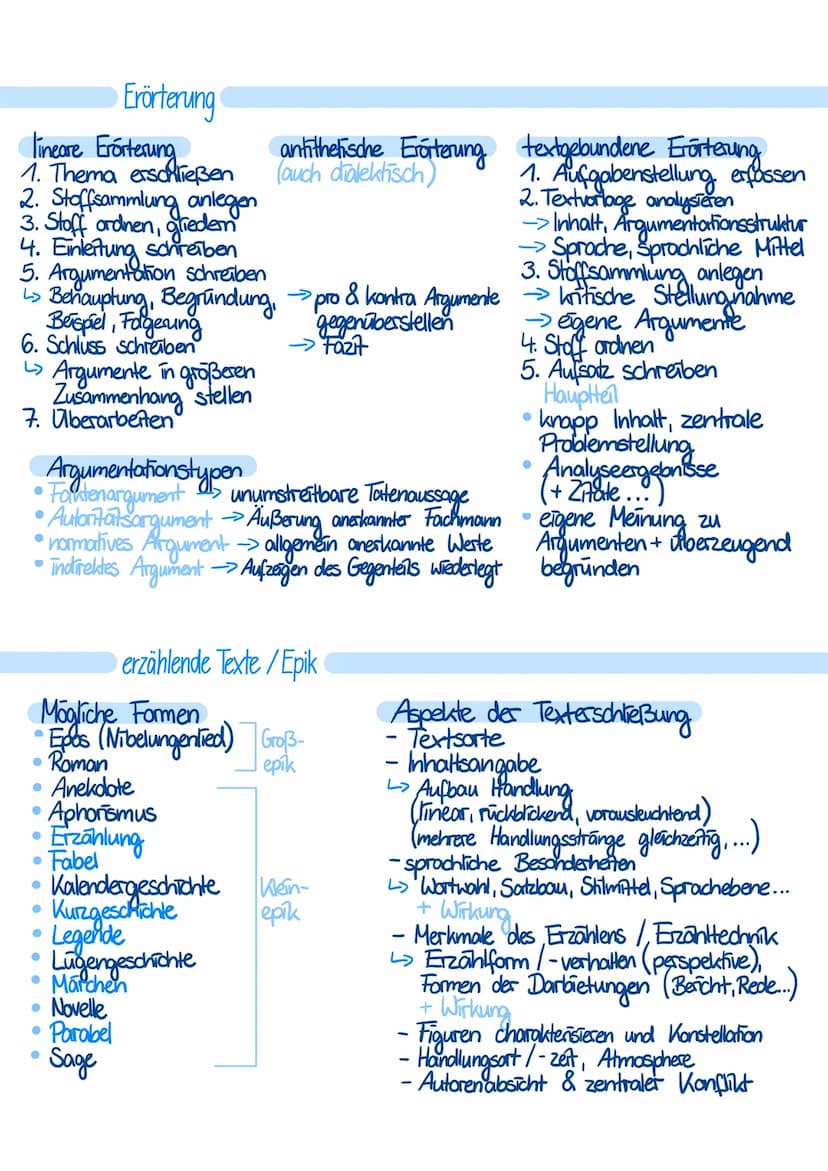 Erörterung
lineare Erörterung
1. Thema erschließen
2. Stoffsammlung anlegen
3. Stoff ordnen, gliedern
4. Einleitung schreiben
5. Argumentation schreiben
↳ Behauptung, Begründung,
Beispiel, Folgerung
6. Schluss schreiben
↳ Argumente in größeren
Zusammenhang stellen
7. Überarbeiten
antithetische Erörterung
(auch dialektisch)
→ pro & kontra Argumente
gegenüberstellen
→ Fazit
textgebundene Erörterung
1. Aufgabenstellung erfassen
2. Textvorlage analysieren
→ Inhalt, Argumentationsstruktur
→ Sprache, sprachliche Mittel
3. Stoffsammlung anlegen
→ kritische Stellungnahme
→ eigene Argumente
4. Stoff ordnen
5. Aufsatz schreiben
Hauptteil
• knapp Inhalt, zentrale
Problemstellung
• Analyseergebnisse
(+ Zitate ...)
• eigene Meinung zu
Argumenten + überzeugend
begründen
Argumentationstypen
• Faktenargument → unumstreitbare Tatenaussage
• Autoritätsargument → Äußerung anerkannter Fachmann
• normatives Argument → allgemein anerkannte Werte
• indirektes Argument → Aufzeigen des Gegenteils wiederlegt
erzählende Texte / Epik
Mögliche Formen
• Epos (Nibelungenlied)
• Roman
Groß-
epik
• Anekdote
• Aphorismus
• Erzählung
• Fabel
• Kalendergeschichte
• Kurzgeschichte
• Legende
• Lügengeschichte
• Märchen
• Novelle
• Parabel
• Sage
Klein-
epik
Aspekte der Texterschließung
- Textsorte
- Inhaltsangabe
↳ Aufbau Handlung
(linear, rückblickend, vorausleuchtend)
(mehrere Handlungsstränge gleichzeitig, ...)
- sprachliche Besonderheiten
↳ Wortwahl, Satzbau, Stilmittel, Sprachebene...
+ Wirkung
- Merkmale des Erzählens / Erzähltechnik
↳ Erzählform / -verhalten (perspektive),
Formen der Darbietungen (Bericht, Rede...)
+ Wirkung
- Figuren charakterisieren und Konstellation
- Handlungsort / -zeit, Atmosphere
- Autorenabsicht & zentraler Konflikt